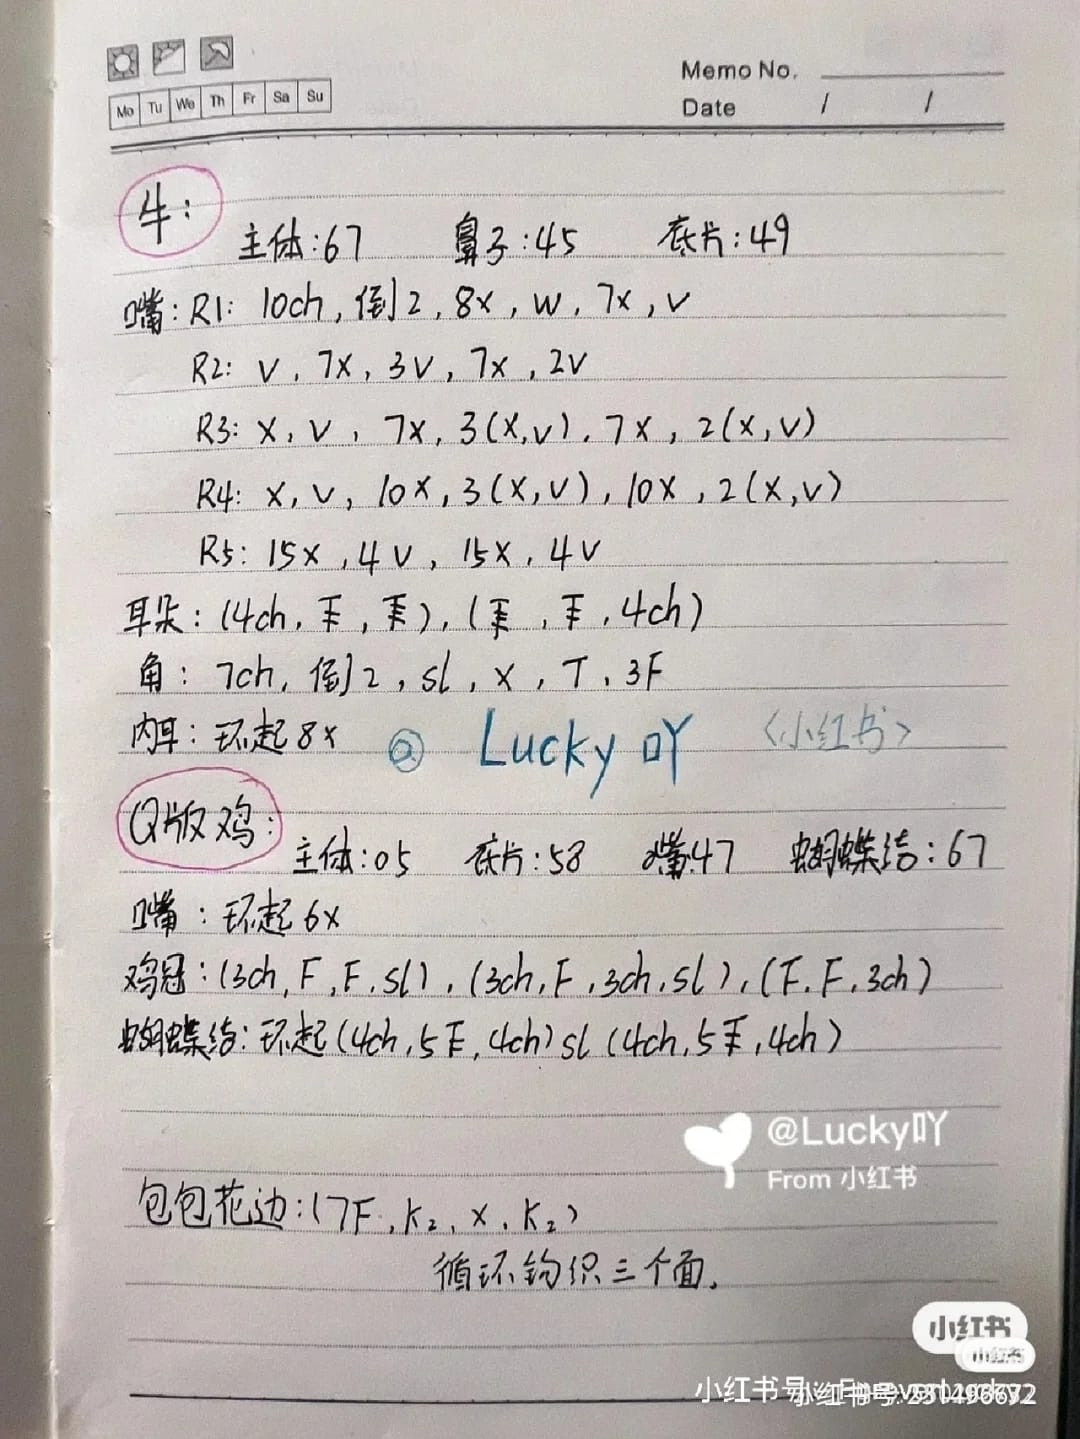 Memo No.
Mo Tu We Th Fr Sa Su
Date / /
牛:
主体:67 鼻子:45 底片:49
嘴:R1: 10ch,倒2,8x,W,7x,V
R2: V,7X,3V,7x,2V
R3: X,V,7X,3(X,V),7X,2(X,V)
R4: X,V,10X,3(X,V),10X,2(X,V)
R5: 15X,4V,15X,4V
耳朵:(4ch, , ),( , ,4ch)
角: 7ch,倒2,sl,X,T,3F
内耳:环起8x @ Lucky吖 <小红书>
Q版鸡:
主体:05 底片:58 嘴:47 蝴蝶结:67
嘴:环起6x
鸡冠:(3ch,F,F,sl),(3ch,F,3ch,sl),(F,F,3ch)
蝴蝶结:环起(4ch,5 ,4ch)sl(4ch,5 ,4ch)
@Lucky吖
From 小红书
包包花边:(7F,K2,X,K2)
循环钩织三个面.
小红书
小红书
小红书号: